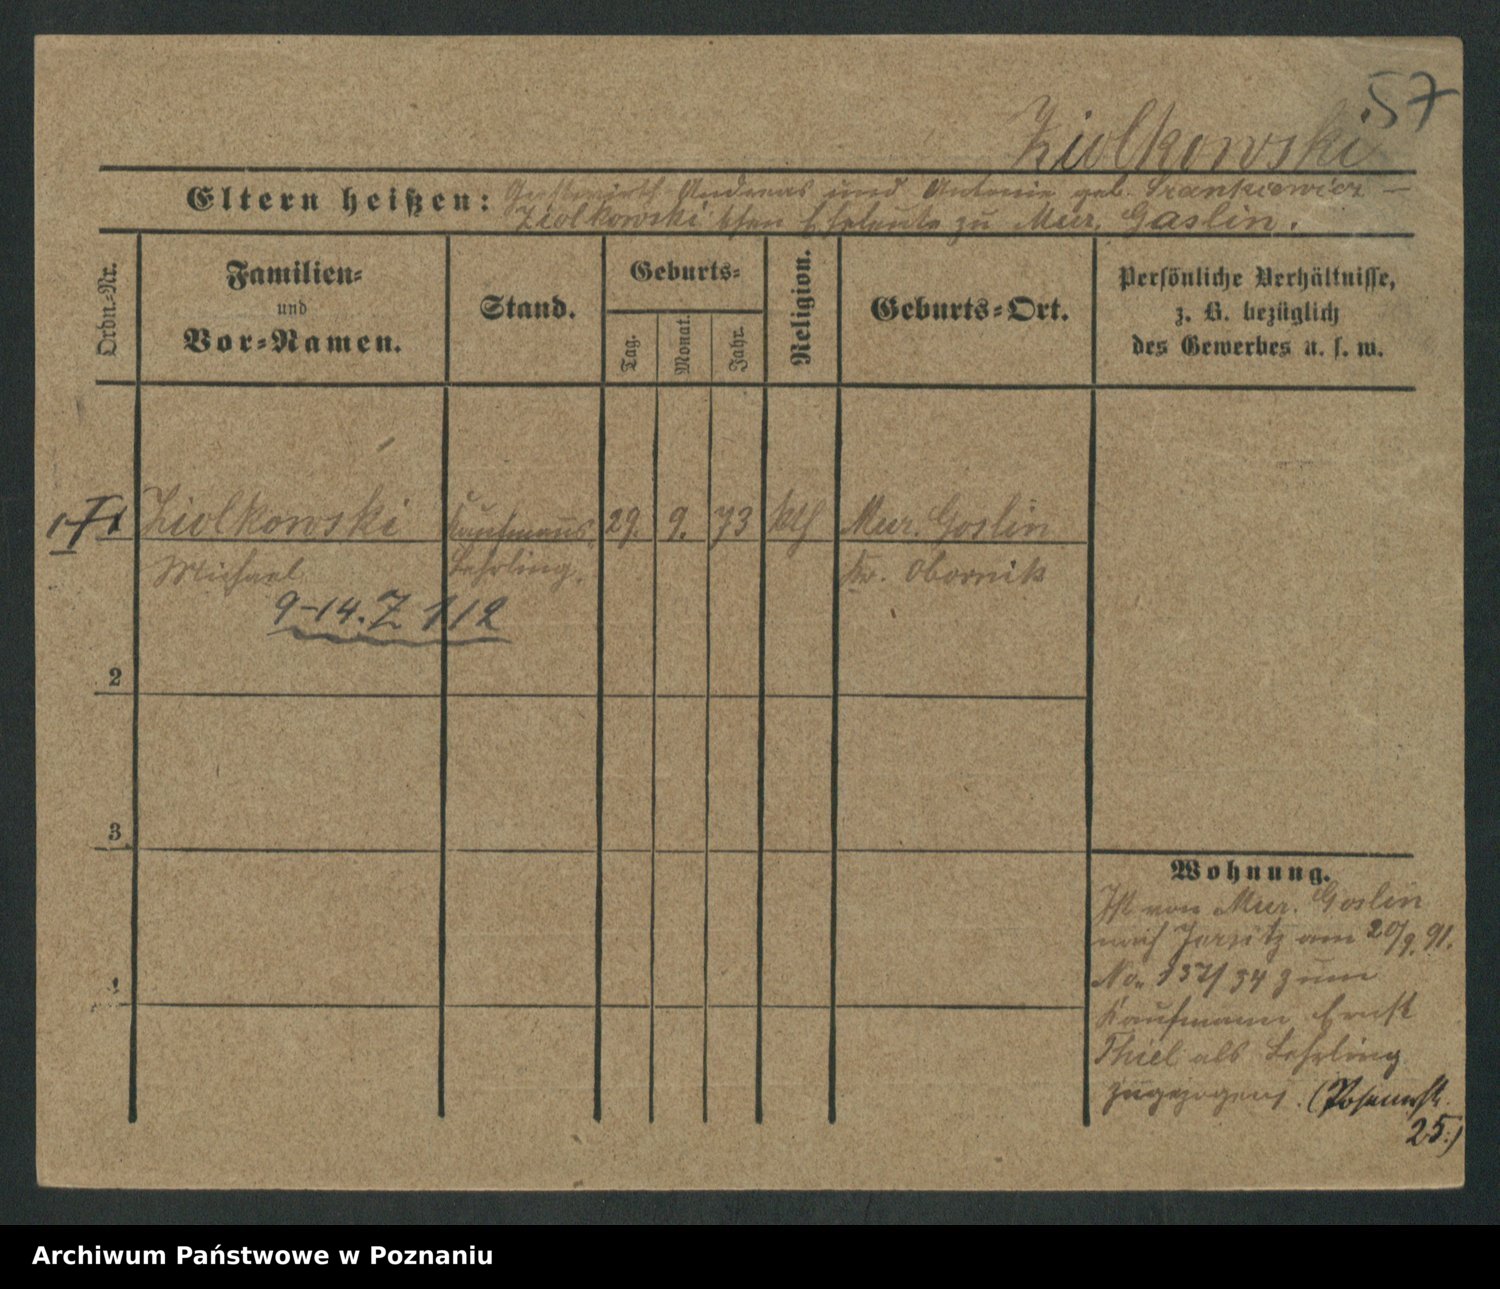 57
Ziolkowski
Eltern heißen: Gastwirth Andreas und Antonie geb. Frankiewicz –
Ziolkowski'schen Eheleute zu Mur. Goslin.
Ordn.-Nr.
Familien-
und
Vor-Namen.
Stand.
Geburts-
Tag.
Monat.
Jahr.
Religion.
Geburts-Ort.
Persönliche Verhältnisse,
z. B. bezüglich
des Gewerbes u. s. w.
1 Ziolkowski Kaufmanns 29. 9. 73 kth Mur. Goslin
Michael Lehrling. Kr. Obornik
9-14. Z 112
2
3
4
Wohnung.
Ist von Mur. Goslin
nach Jersitz am 20/9. 91.
No. 137/34 zum
Kaufmann Ernst
Thiel als Lehrling
zugezogen. (Posenerstr.
25.)
Archiwum Państwowe w Poznaniu